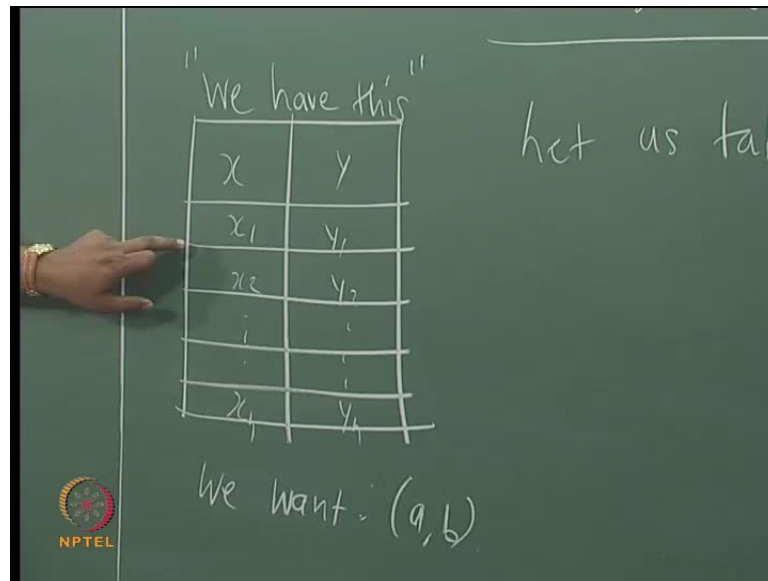 "We have this"
x y
x₁ y₁
x₂ y₂
⋮ ⋮
xₙ yₙ
We want: (a, b)
Let us tal
NPTEL